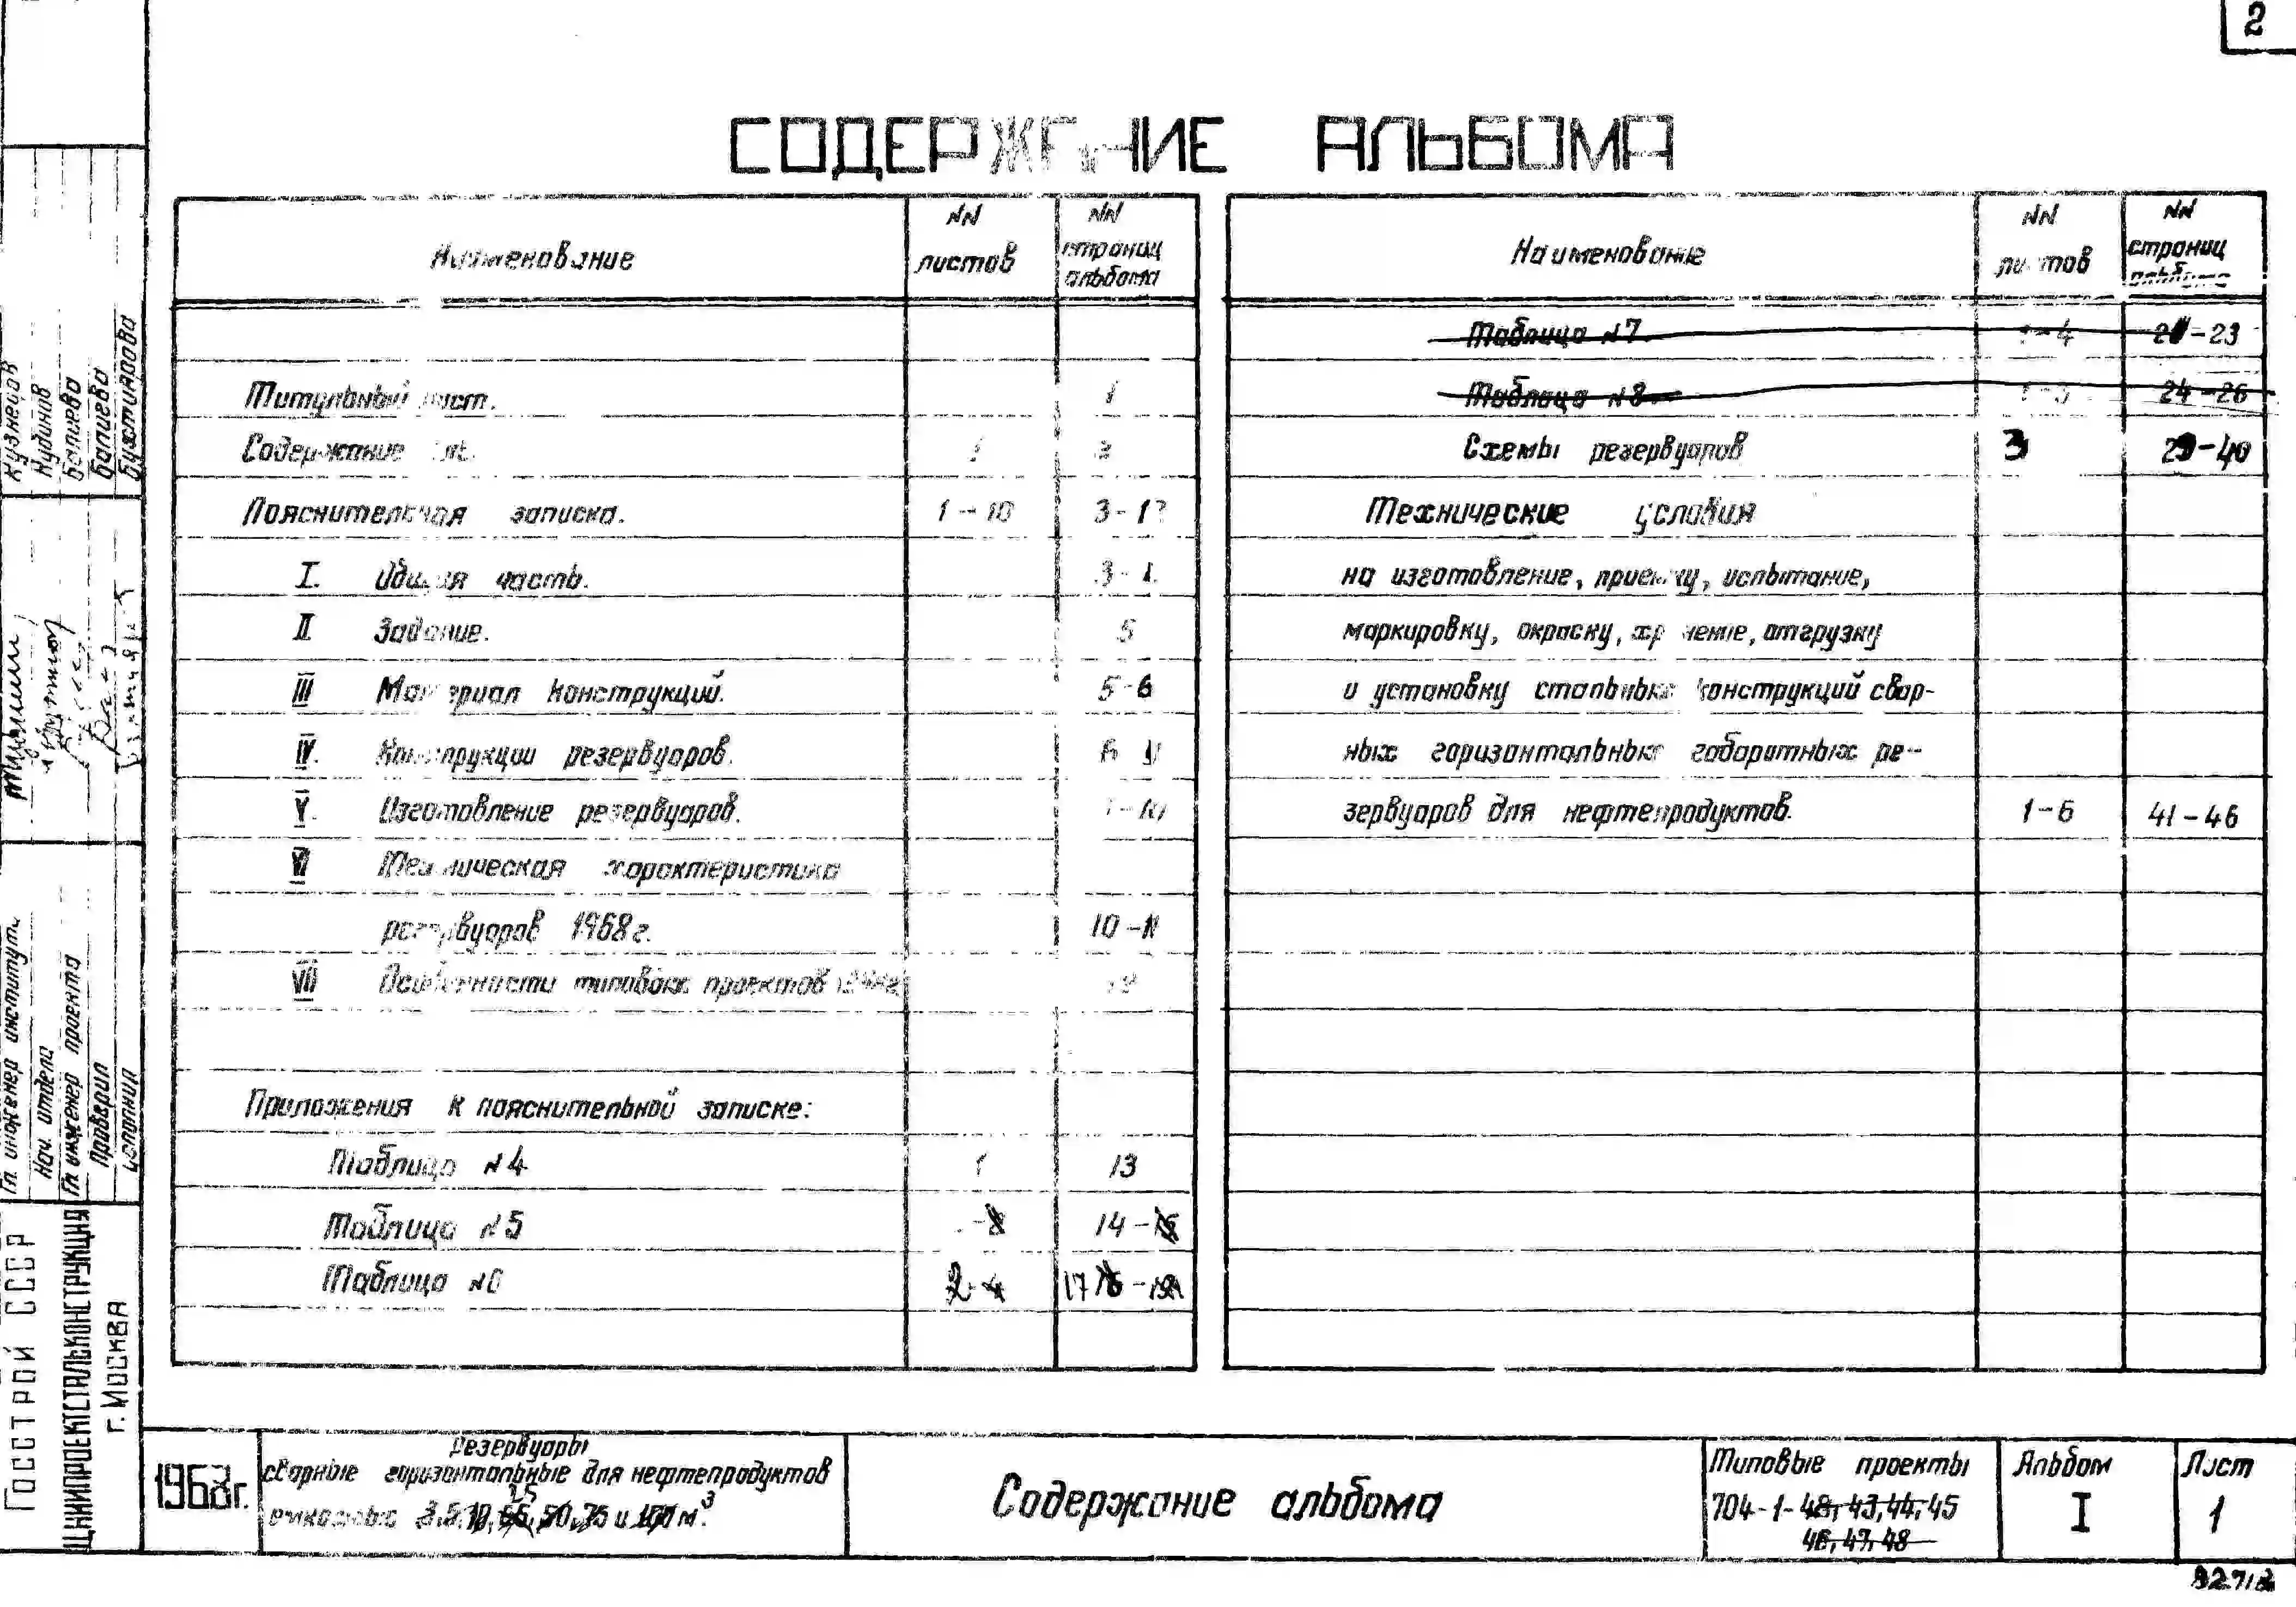 2
СОДЕРЖАНИЕ АЛЬБОМА
Наименование
NN листов
NN страниц альбома
Титульный лист.
Содержание
Пояснительная записка. 1-10 3-12
I. Общая часть.
II Задание. 5
III Материал конструкций. 5-6
IV. Конструкции резервуаров.
V. Изготовление резервуаров.
VI Техническая характеристика
резервуаров 1968г. 10-11
VII Особенности типовых проектов
Приложения к пояснительной записке:
Таблица N4 1 13
Таблица N5 14-
Таблица N6 2 17
Наименование
NN листов
NN страниц альбома
Таблица N7 1-4 -23
Таблица N8 24-26
Схемы резервуаров 3 -40
Технические условия
на изготовление, приемку, испытание,
маркировку, окраску, хранение, отгрузку
и установку стальных конструкций свар-
ных горизонтальных габаритных ре-
зервуаров для нефтепродуктов. 1-6 41-46
Кузнецов
Кудинов
Балиева
Балиева
Гл. инженер институт.
Нач. отдела
Гл. инженер проекта
Проверил
Исполнил
Госстрой СССР
ЦНИИПРОЕКТСТАЛЬКОНСТРУКЦИЯ
г. Москва
1968г.
Резервуары
сварные горизонтальные для нефтепродуктов
емкостью 3, 5, 10, 25, 50, 75 и 100 м³
Содержание альбома
Типовые проекты
704-1-42, 43, 44, 45
46, 47, 48
Альбом
I
Лист
1